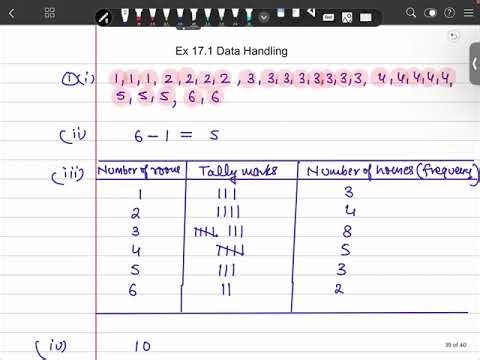 Ex 17.1 Data Handling
①(i) 1, 1, 1, 2, 2, 2, 2, 3, 3, 3, 3, 3, 3, 3, 3, 4, 4, 4, 4, 4,
5, 5, 5, 6, 6
(ii) 6 - 1 = 5
(iii) Number of rooms Tally marks Number of houses (frequency)
1 ||| 3
2 |||| 4
3 <s>||||</s> ||| 8
4 <s>||||</s> 5
5 ||| 3
6 || 2
(iv) 10
39 of 40